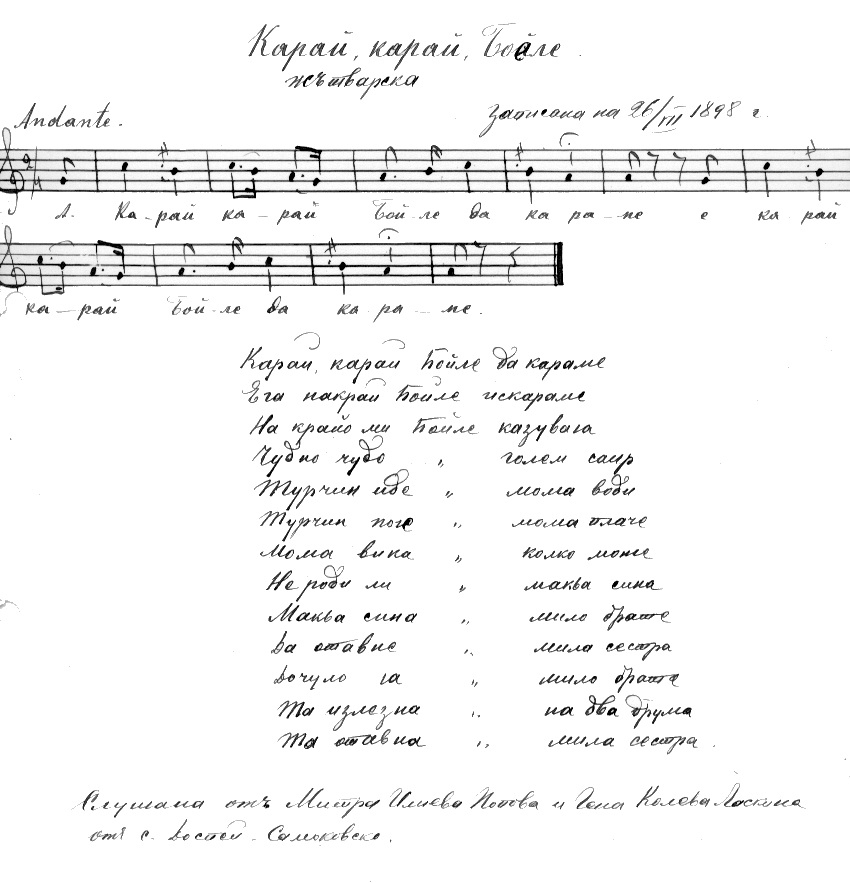 Карай, карай, Бойле.
жътварска
Andante.
Записана на 26/III 1898 г.
А. Ка-рай ка-рай Бой-ле да ка ра-ме е ка-рай
ка-рай Бой-ле да ка-ра-ме.
Карай, карай Бойле да караме
Ега накрай Бойле искараме
На крайо ми Бойле казувага
Чудно чудо „ голем саир
Турчин иде „ мома води
Турчин пое „ мома плаче
Мома вика „ колко може
Не роди ли „ макьа сина
Макьа сина „ мило брате
Да отавне „ мила сестра
Дочуло га „ мило брате
Та излезна „ на два друма
Та отавна „ мила сестра.
Слушана отъ Митра Илиева Попова и Гена Колева
отъ с. Доспей - Самоковско.